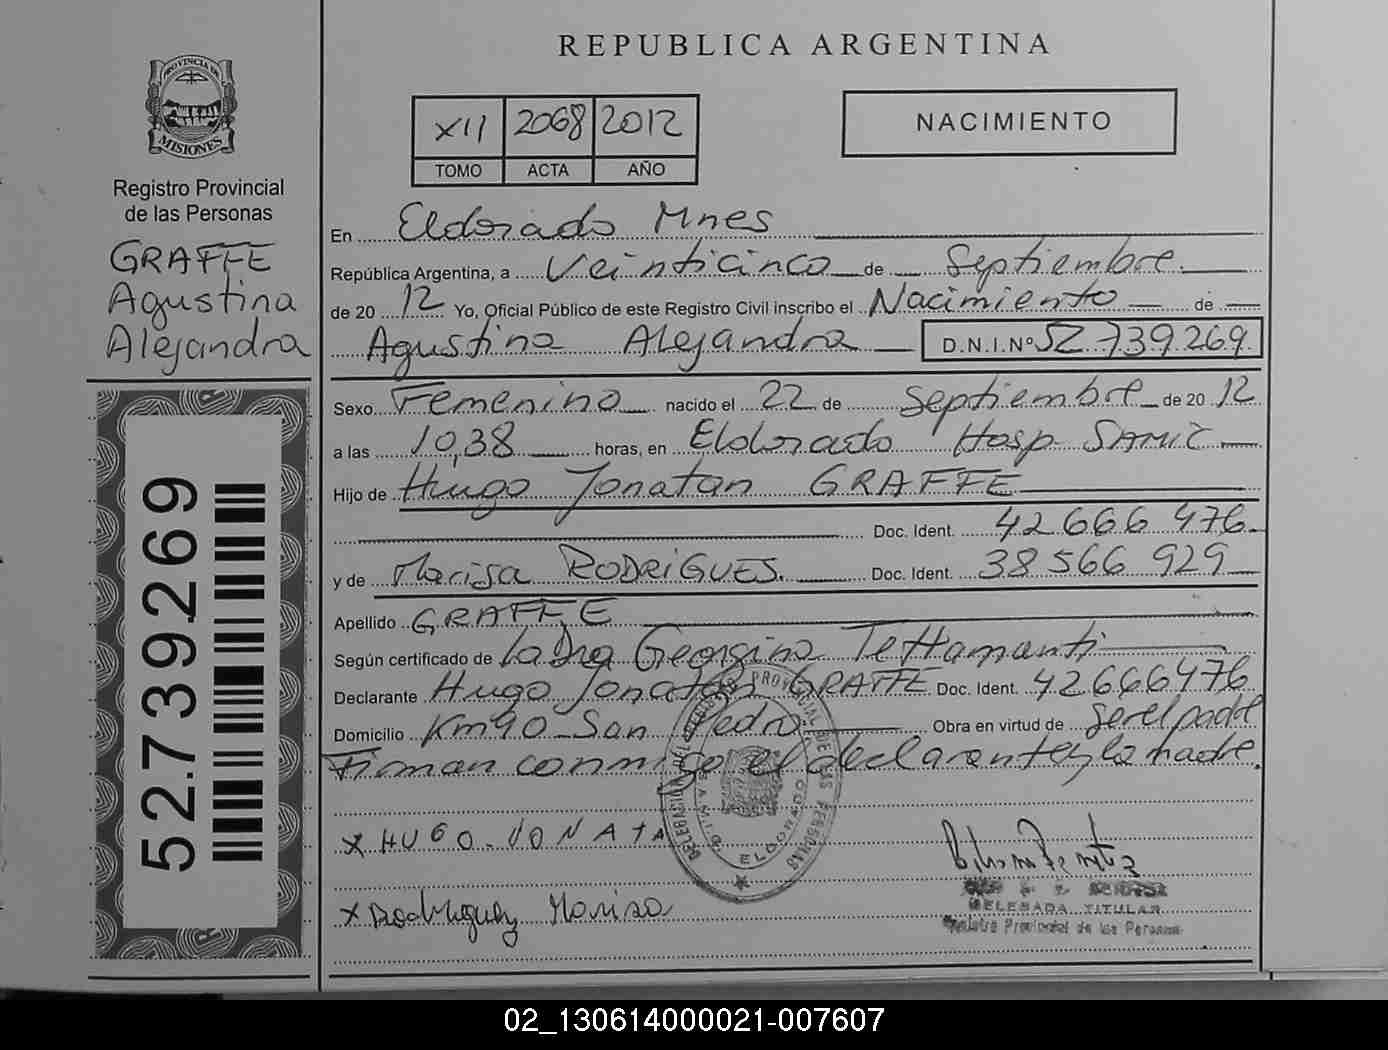 REPUBLICA ARGENTINA
PROVINCIA DE
MISIONES
Registro Provincial
de las Personas
GRAFFE
Agustina
Alejandra
52.739269
XII 2068 2012
TOMO ACTA AÑO
NACIMIENTO
En Eldorado Mnes
República Argentina, a Veinticinco de Septiembre
de 20 12 Yo, Oficial Público de este Registro Civil inscribo el Nacimiento de
Agustina Alejandra D.N.I.Nº 52.739.269
Sexo Femenino nacido el 22 de Septiembre de 20 12
a las 10,38 horas, en Eldorado Hosp. SAMIC
Hijo de Hugo Jonatan GRAFFE
Doc. Ident. 42666476
y de Marisa RODRIGUES. Doc. Ident. 38566929
Apellido GRAFFE
Según certificado de La Dra Georgina Tettamanti
Declarante Hugo Jonatan GRAFFE Doc. Ident. 42666476
Domicilio Km90 San Pedro Obra en virtud de ser el padre
Firman conmigo el declarante y la madre.
DELEGACION PROVINCIAL DE LAS PERSONAS
S.A.M.I.C. ELDORADO
X HUGO JONATA
X Rodriguez Marisa
DELEGADA TITULAR
Registro Provincial de las Personas
02_130614000021-007607